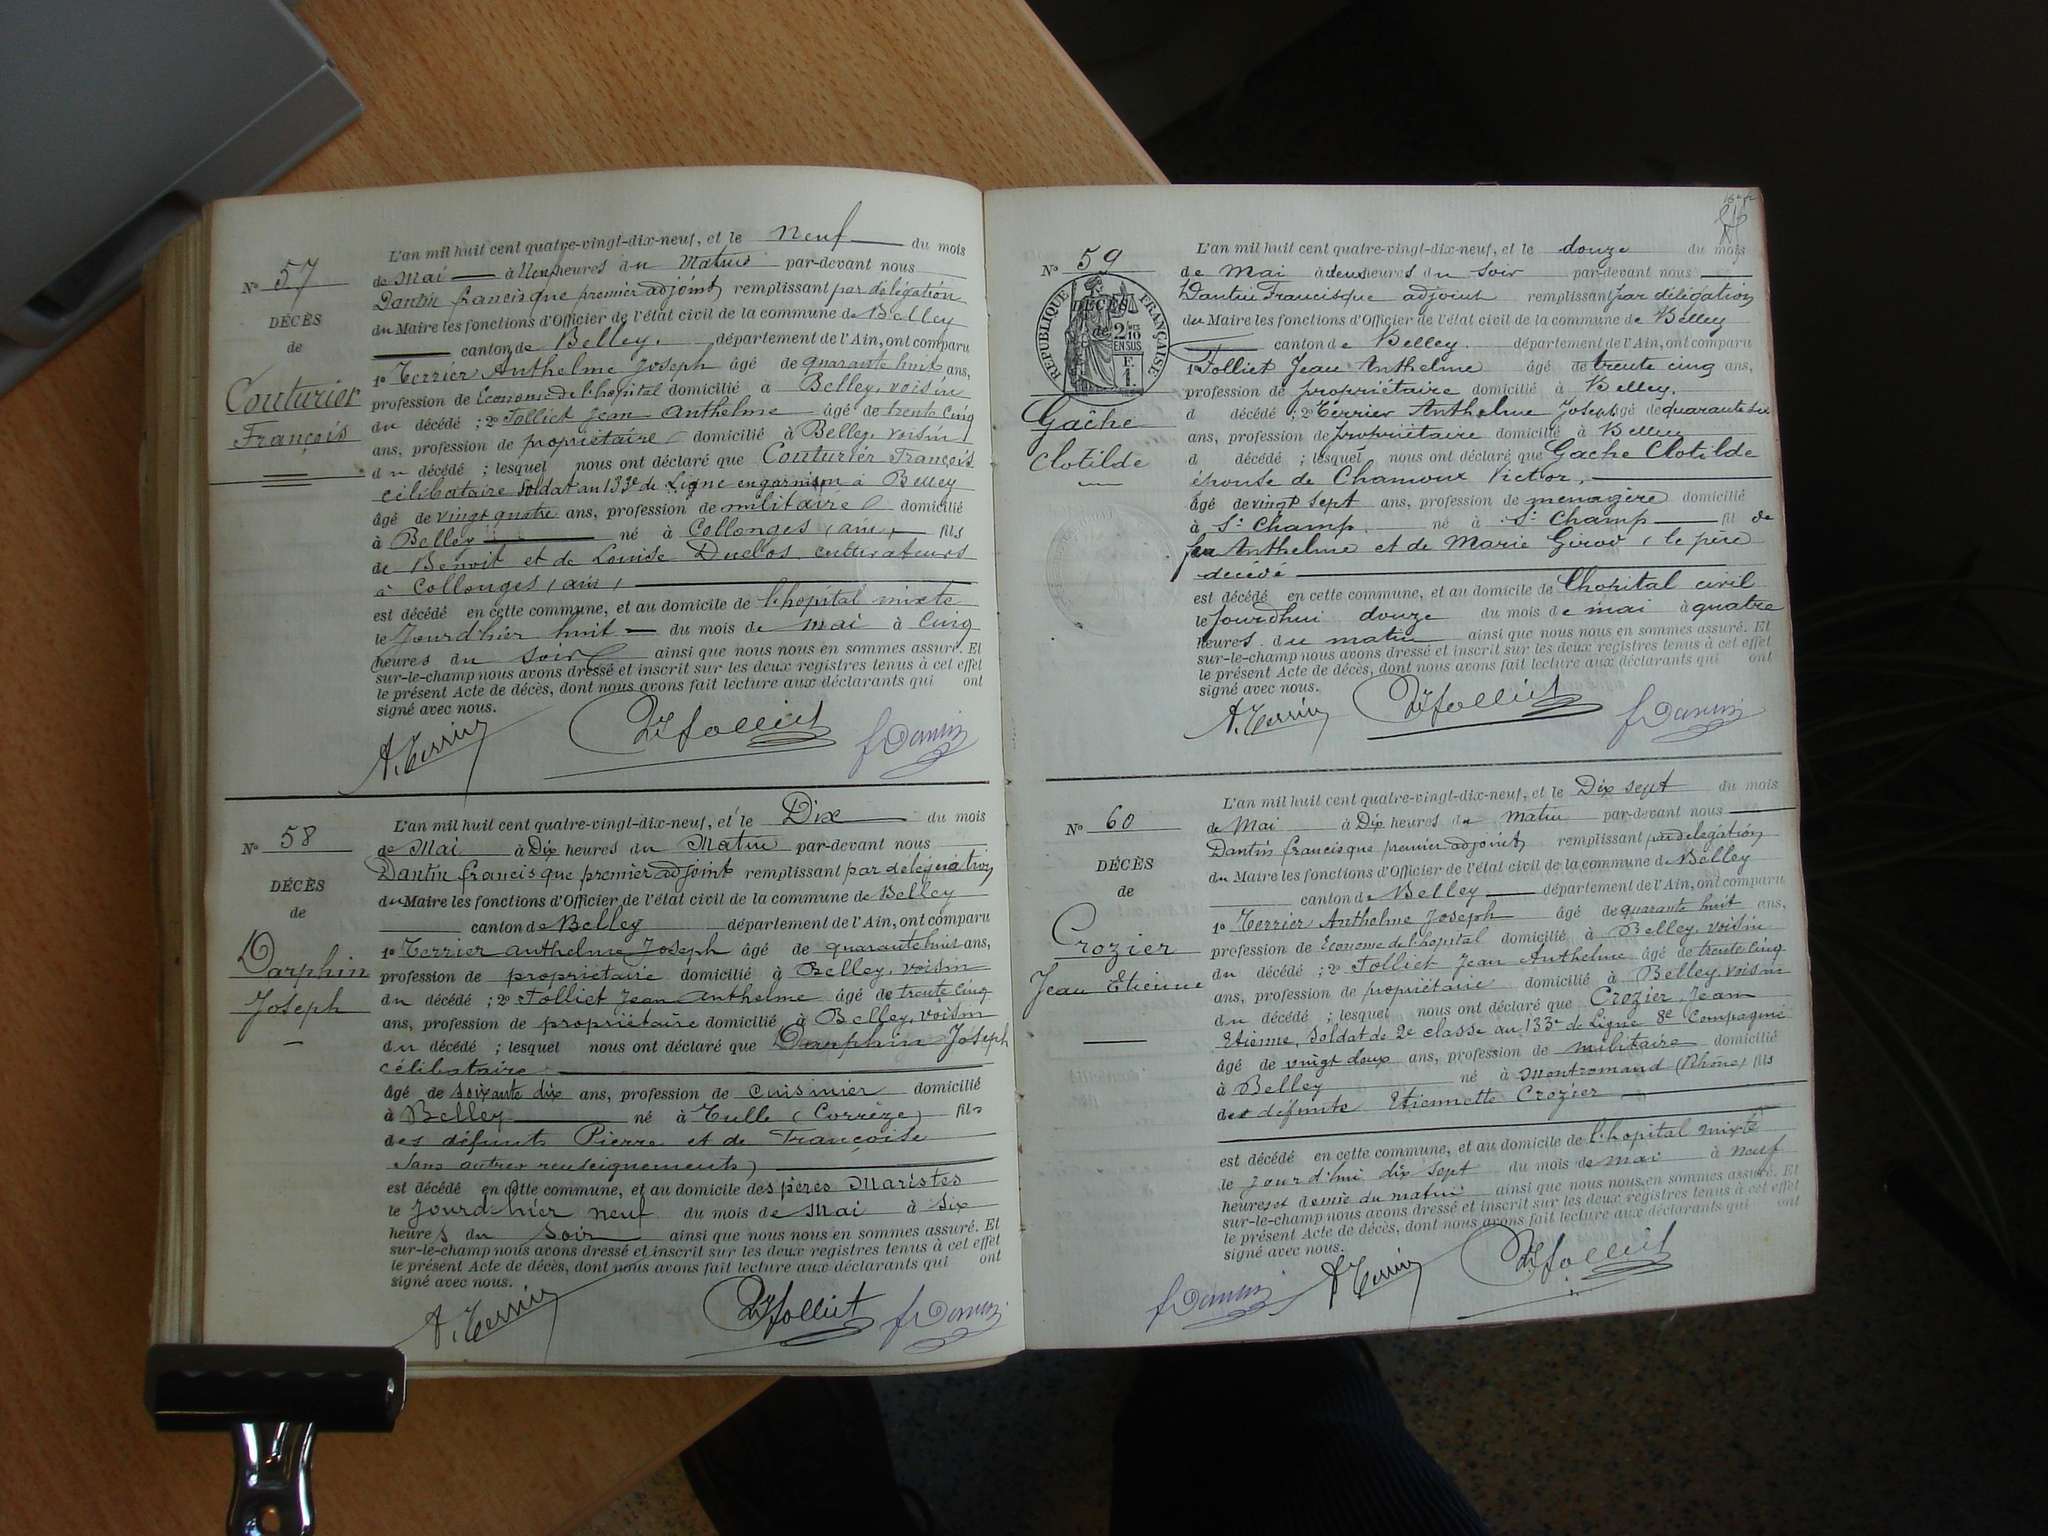 N° 57
DÉCÈS
de
Couturier
François
L'an mil huit cent quatre-vingt-dix-neuf, et le neuf du mois
de Mai à neuf heures du Matin par-devant nous
Dantin francisque premier adjoint remplissant par délégation
du Maire les fonctions d'Officier de l'état civil de la commune de Belley
canton de Belley. département de l'Ain, ont comparu
1° Terrier Anthelme Joseph âgé de quarante huit ans,
profession de Econome de l'hopital domicilié à Belley, voisin
du décédé ; 2° Folliet Jean Anthelme âgé de trente cinq
ans, profession de propriétaire domicilié à Belley, voisin
du décédé ; lesquel nous ont déclaré que Couturier François
célibataire soldat au 133e de Ligne en garnison à Belley
âgé de vingt quatre ans, profession de militaire domicilié
à Belley né à Collonges (ain) fils
de Benoit et de Louise Duclos cultivateurs
à Collonges (ain)
est décédé en cette commune, et au domicile de l'hopital mixte
le Jourd'hier huit du mois de Mai à Cinq
heures du soir ainsi que nous nous en sommes assuré. Et
sur-le-champ nous avons dressé et inscrit sur les deux registres tenus à cet effet
le présent Acte de décès, dont nous avons fait lecture aux déclarants qui ont
signé avec nous.
A. Terrier Folliet f Dantin
N° 58
DÉCÈS
de
Darphin
Joseph
L'an mil huit cent quatre-vingt-dix-neuf, et le Dix du mois
de Mai à Dix heures du Matin par-devant nous
Dantin francisque premier adjoint remplissant par délégation
du Maire les fonctions d'Officier de l'état civil de la commune de Belley
canton de Belley département de l'Ain, ont comparu
1° Terrier anthelme Joseph âgé de quarante huit ans,
profession de propriétaire domicilié à Belley, voisin
du décédé ; 2° Folliet Jean anthelme âgé de trente cinq
ans, profession de propriétaire domicilié à Belley, voisin
du décédé ; lesquel nous ont déclaré que Darphin Joseph
célibataire
âgé de soixante dix ans, profession de cuisinier domicilié
à Belley né à Tulle (Corrèze) fils
des défunts Pierre et de Françoise
sans autres renseignements)
est décédé en cette commune, et au domicile des pères Maristes
le Jourd'hier neuf du mois de Mai à six
heures du soir ainsi que nous nous en sommes assuré. Et
sur-le-champ nous avons dressé et inscrit sur les deux registres tenus à cet effet
le présent Acte de décès, dont nous avons fait lecture aux déclarants qui ont
signé avec nous.
A. Terrier Folliet f Dantin
N° 59
RÉPUBLIQUE FRANÇAISE
DÉCÈS
de
2/10 EN SUS
Gâche
Clotilde
L'an mil huit cent quatre-vingt-dix-neuf, et le douze du mois
de Mai à deux heures du soir par-devant nous
Dantin Francisque adjoint remplissant par délégation
du Maire les fonctions d'Officier de l'état civil de la commune de Belley
canton de Belley. département de l'Ain, ont comparu
1° Folliet Jean Anthelme âgé de trente cinq ans,
profession de propriétaire domicilié à Belley.
d décédé ; 2° Terrier Anthelme Joseph âgé de quarante
ans, profession de propriétaire domicilié à Belley
d décédé ; lesquel nous ont déclaré que Gache Clotilde
épouse de Chamoux Victor,
âgé de vingt sept ans, profession de menagère domicilié
à St Champ né à St Champ fil de
feu Anthelme et de Marie Girod (le père
décédé
est décédé en cette commune, et au domicile de L'hopital civil
le Jourdhui douze du mois de mai à quatre
heures du matin ainsi que nous nous en sommes assuré. Et
sur-le-champ nous avons dressé et inscrit sur les deux registres tenus à cet effet
le présent Acte de décès, dont nous avons fait lecture aux déclarants qui ont
signé avec nous.
A. Terrier Folliet f Dantin
N° 60
DÉCÈS
de
Crozier
Jean Etienne
L'an mil huit cent quatre-vingt-dix-neuf, et le Dix sept du mois
de Mai à Dix heures du matin par-devant nous
Dantin francisque premier adjoint remplissant par delegation
du Maire les fonctions d'Officier de l'état civil de la commune de Belley
canton de Belley département de l'Ain, ont comparu
1° Terrier Anthelme Joseph âgé de quarante huit ans,
profession de Econome de l'hopital domicilié à Belley, voisin
du décédé ; 2° Folliet Jean Anthelme âgé de trente cinq
ans, profession de propriétaire domicilié à Belley voisin
du décédé ; lesquel nous ont déclaré que Crozier Jean
Etienne, soldat de 2e classe au 133e de Ligne 8e Compagnie
âgé de vingt deux ans, profession de militaire domicilié
à Belley né à Montromand (Rhône) fils
des défunte Etiennette Crozier
est décédé en cette commune, et au domicile de l'hopital mixte
le Jourd'hui dix sept du mois de mai à neuf
heures et demie du matin ainsi que nous nous en sommes assuré. Et
sur-le-champ nous avons dressé et inscrit sur les deux registres tenus à cet effet
le présent Acte de décès, dont nous avons fait lecture aux déclarants qui ont
signé avec nous.
f Dantin A Terrier Folliet